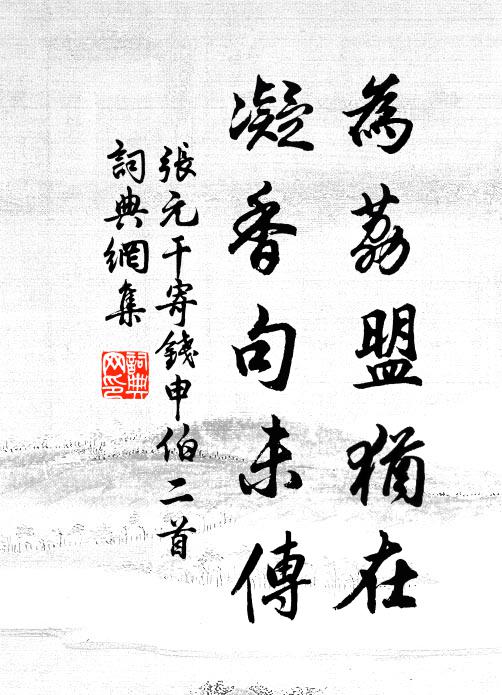 為荔盟猶在
凝香句未傳
張元干寄錢申伯二首
詞典網集
詞典
网印